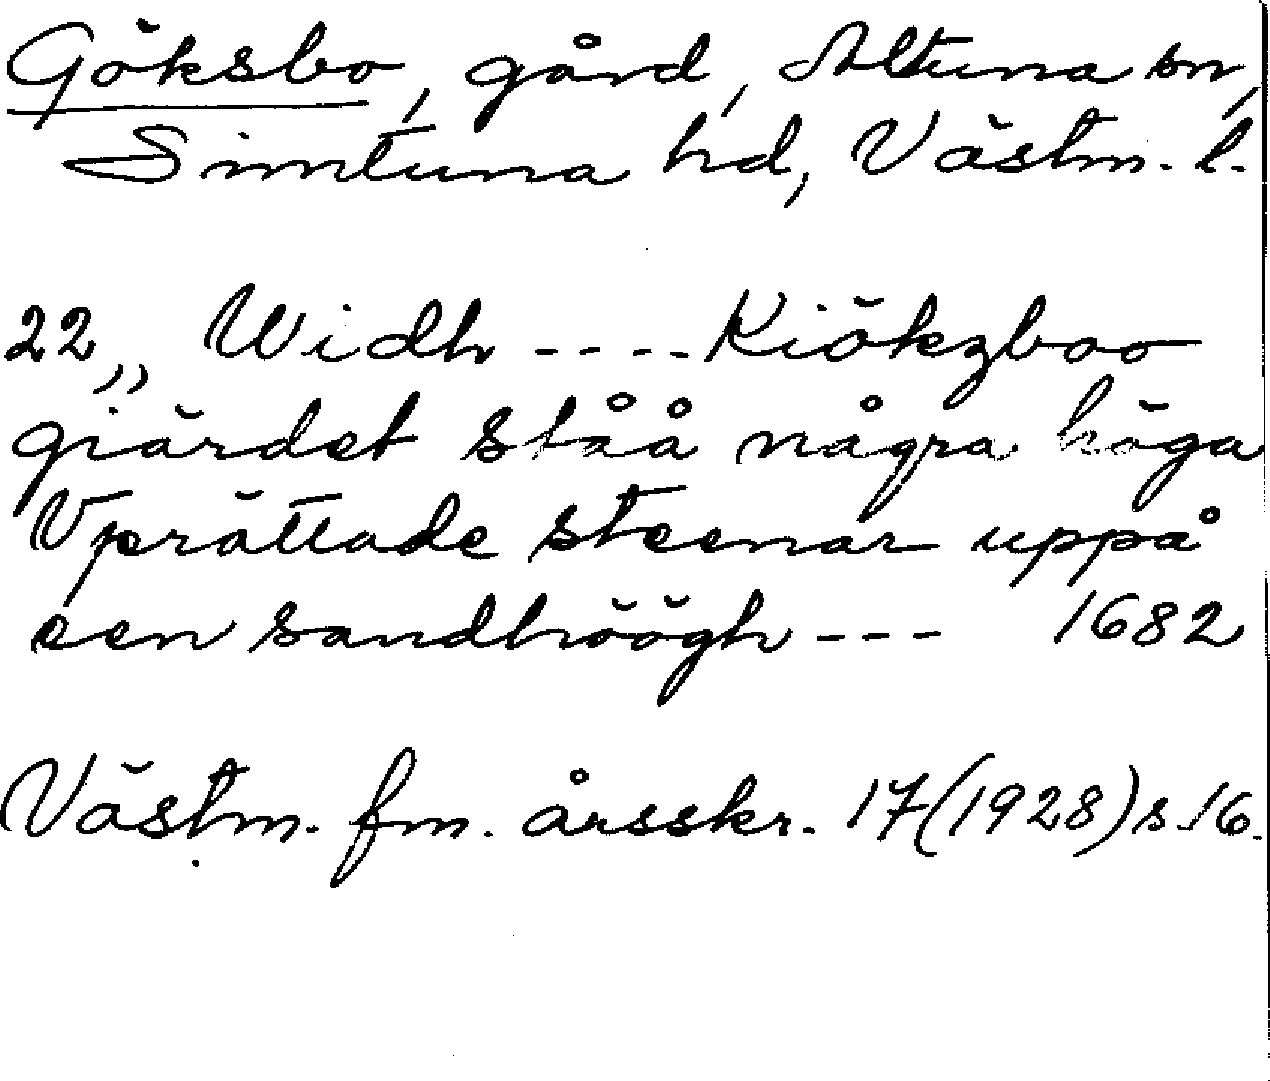 Göksbo, gård, Altuna sn,
Simtuna hd, Västm. l.
22,, Widh ---- Kiökzboo
giärdet ståå några höga
Vprättade steenar uppå
een sandhöögh --- 1682
Västm. fm. årsskr. 17(1928) s. 16.